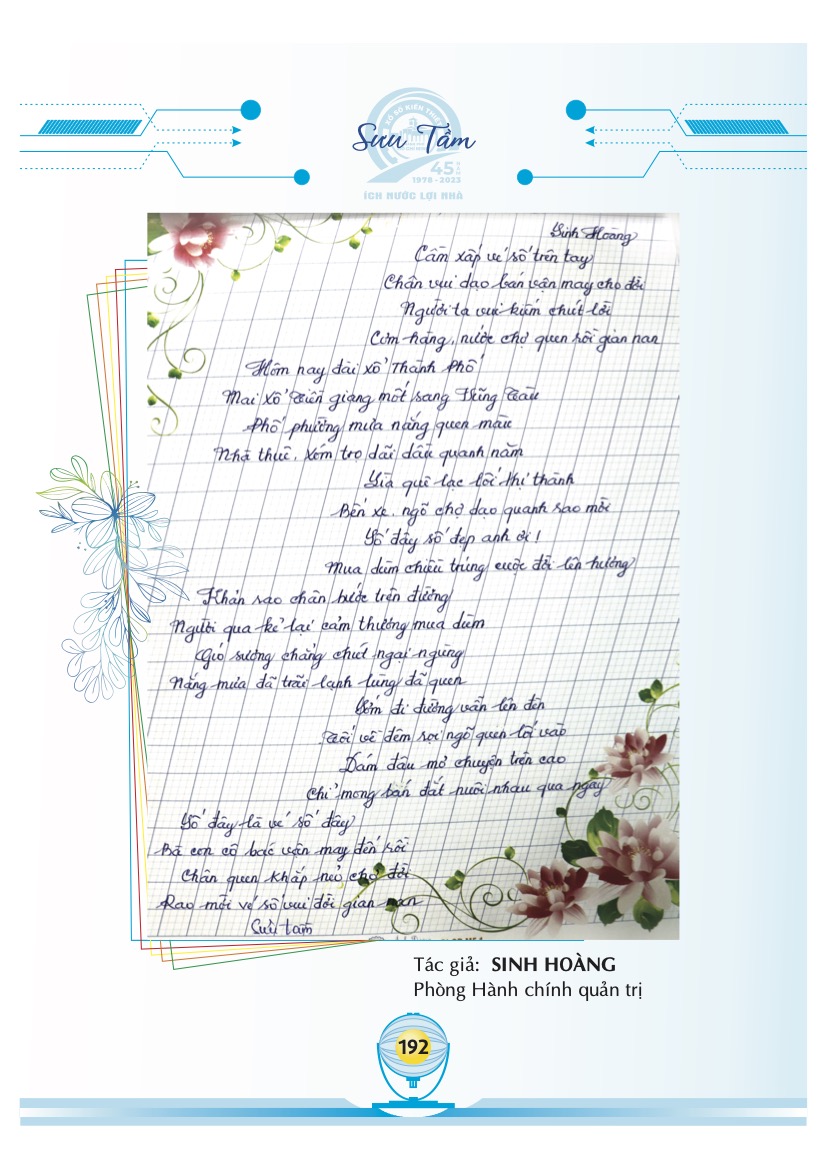 XỔ SỐ KIẾN THIẾT
Sưu Tầm
45 NĂM
1978 - 2023
ÍCH NƯỚC LỢI NHÀ
Sinh Hoàng
Cầm xấp vé số trên tay
Chân vui dạo bán vận may cho đời
Người ta vui kiếm chút lời
Cơm hàng, nước chợ quen rồi gian nan
Hôm nay đài xổ Thành Phố
Mai xổ Tiền giang mốt sang Vũng Tàu
Phố phường mưa nắng quen màu
Nhà thuê, xóm trọ dãi dầu quanh năm
Già quê lạc lối thị thành
Bến xe, ngõ chợ dạo quanh sao mời
Số đây số đẹp anh ơi!
Mua dùm chiều trúng cuộc đời lên hương
Khản sao chân bước trên đường
Người qua kẻ lại cảm thương mua dùm
Gió sương chẳng chút ngại ngùng
Nắng mưa đã trãi lạnh lùng đã quen
Sớm đi đường vẫn lên đèn
Tối về đêm sợi ngõ quen lối vào
Dám đâu mơ chuyện trên cao
Chỉ mong bán đắt nuôi nhau qua ngày
Số đây là vé số đây
Bà con cô bác vận may đến rồi
Chân quen khắp nẻo chợ đời
Rao mời vé số vui đời gian nan
Sưu tầm
Tác giả: SINH HOÀNG
Phòng Hành chính quản trị
192